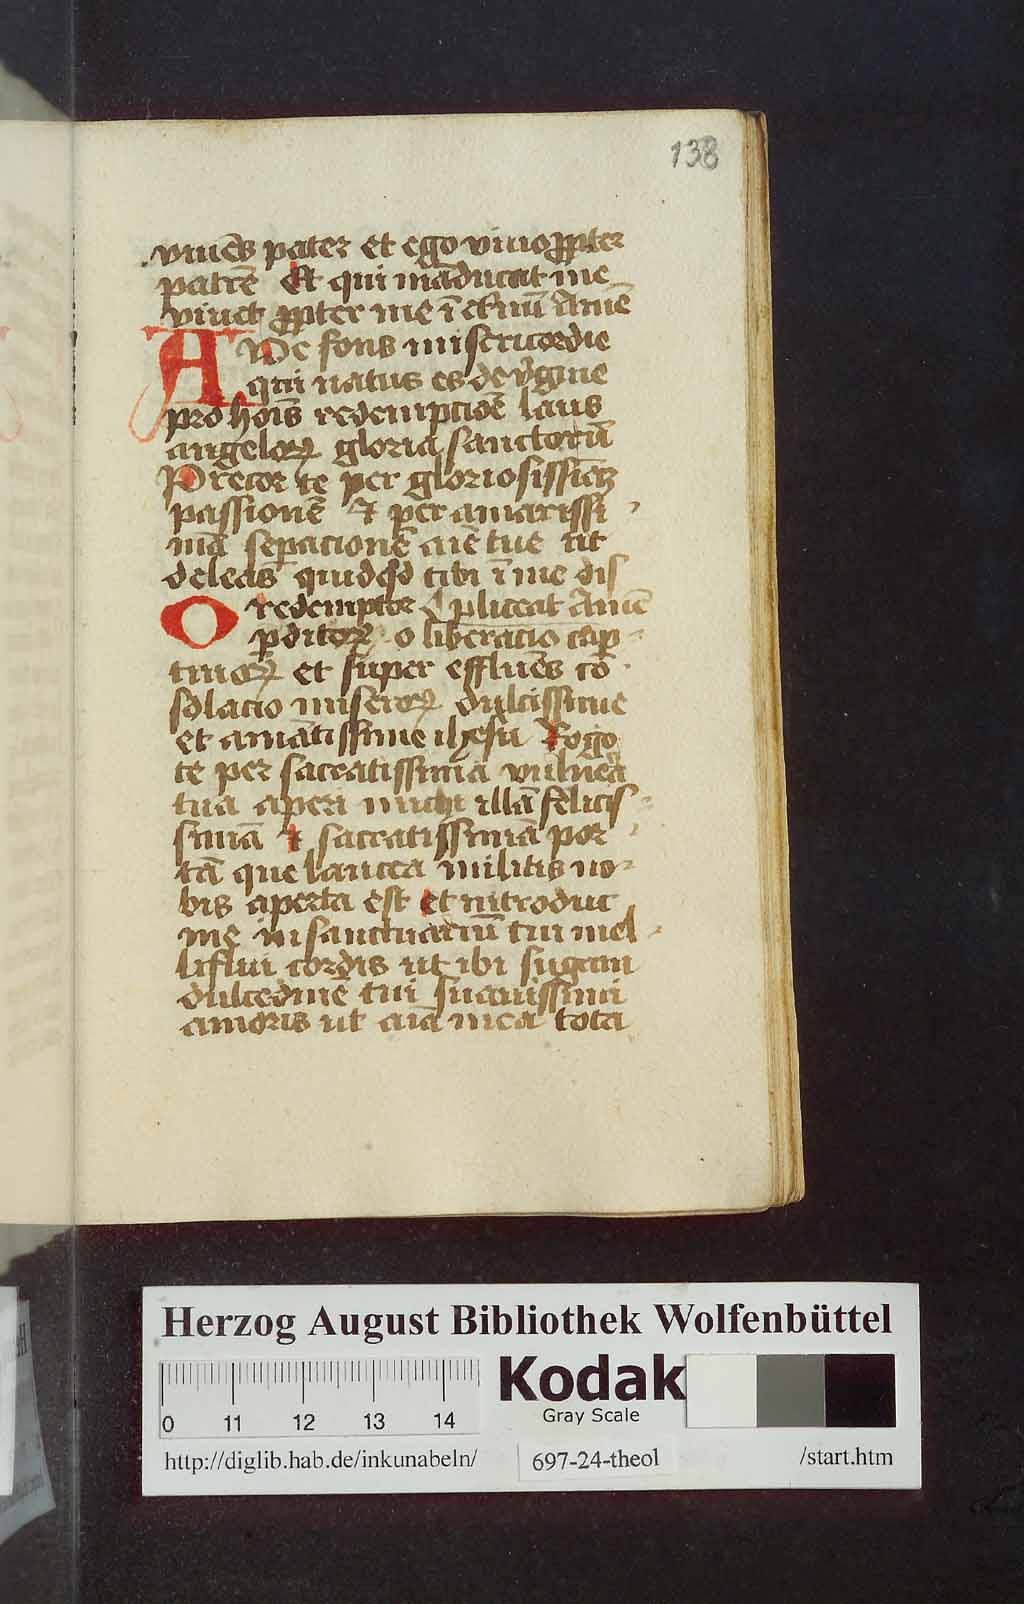 138
viuēs pater et ego viuo ꝓpter
patrē Et qui māducat me
viuet ꝓpter me ī etnū Amē
AVe fons misericordie
qui natus es de vgine
pro hoīs redempcioē laus
angeloꝝ gloria sanctorū
Precor te per gloriosissiāꝫ
passionē ⁊ per amarissi
mā seꝑacionē aīe tue ut
deleas quidqͥd tibi ī me dis
O redemptor pliceat Amē
ꝑditoꝝ o liberacio cap
tiuoꝝ et super effluēs cō
solacio miseroꝝ dulcissime
et amātissime ihesu Rogo
te per sacratissima vulnera
tua aperi michi illā felicis
simā ⁊ sacratissimā por
tā que lancea militis no
bis aperta est et introduc
me in sanctuariū tui mel
liflui cordis ut ibi sugam
dulcedinē tui suauissimi
amoris ut aīa mea tota
Herzog August Bibliothek Wolfenbüttel
Kodak
Gray Scale
0 11 12 13 14
http://diglib.hab.de/inkunabeln/ 697-24-theol /start.htm